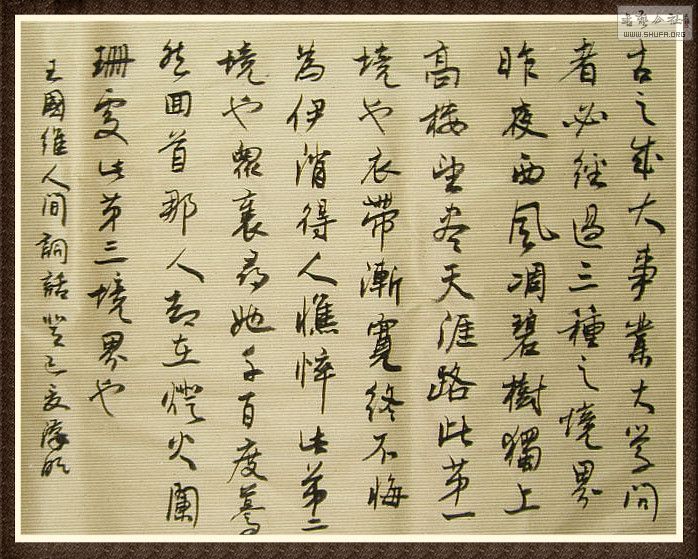 古之成大事業大学問
者必經過三種之境界
昨夜西風凋碧樹獨上
高樓望尽天涯路此第一
境也衣帶漸寬終不悔
為伊消得人憔悴此第二
境也眾裏尋她千百度驀
然回首那人却在燈火闌
珊處此第三境界也
王國維人間詞話癸巳
WWW.SHUFA.ORG